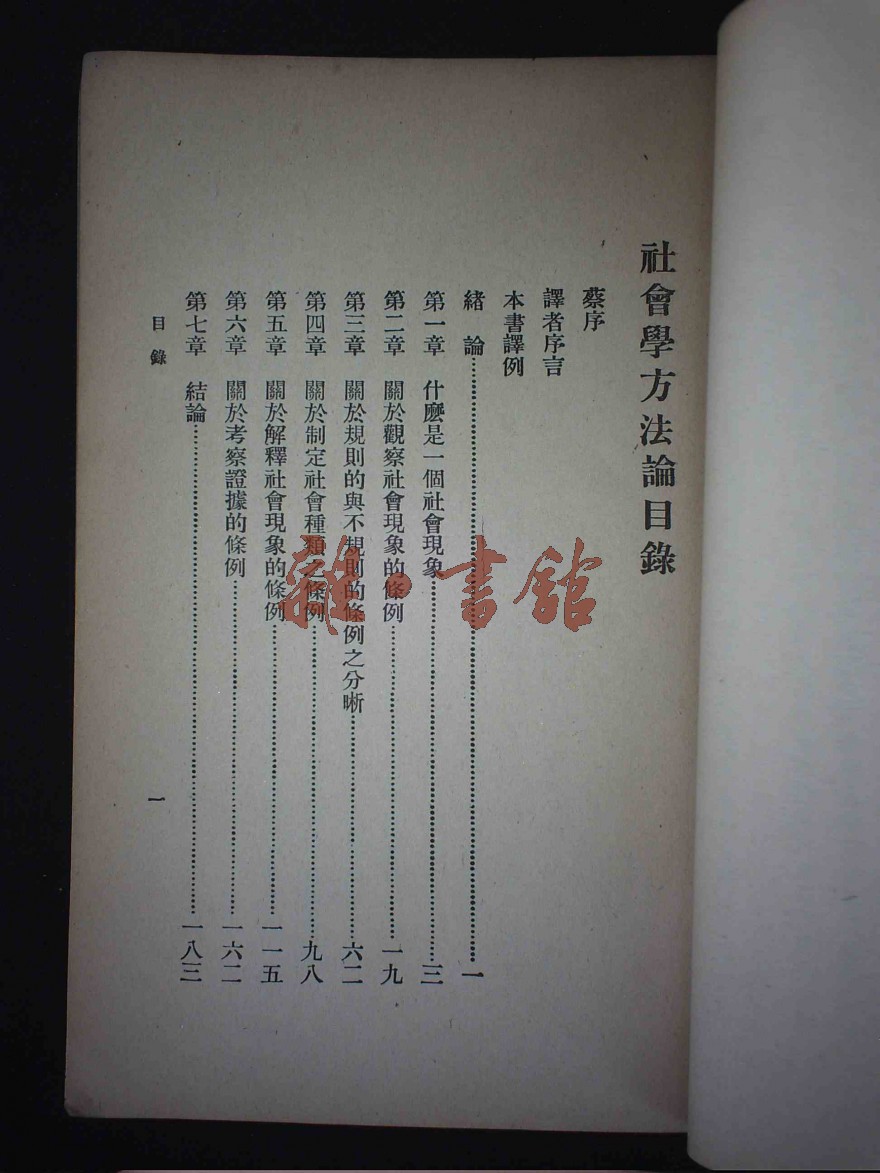 社會學方法論目錄
蔡序
譯者序言
本書譯例
緒論……一
第一章 什麽是一個社會現象……三
第二章 關於觀察社會現象的條例……一九
第三章 關於規則的與不規則的條例之分晣……六二
第四章 關於制定社會種類之條例……九八
第五章 關於解釋社會現象的條例……一一五
第六章 關於考察證據的條例……一六二
第七章 結論……一八三
目錄
一
雜·書館